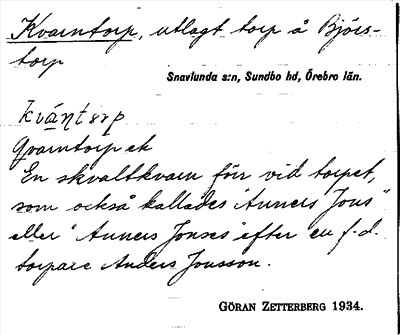 Kvarntorp, utlagt torp å Björs-
torp
Snavlunda s:n, Sundbo hd, Örebro län.
kvántorp
Qvarntorp ek
En skvaltkvarn förr vid torpet,
som också kallades "Anners Jons"
eller "Anners Jonses" efter en f.d.
torpare Anders Jonsson.
GÖRAN ZETTERBERG 1934.